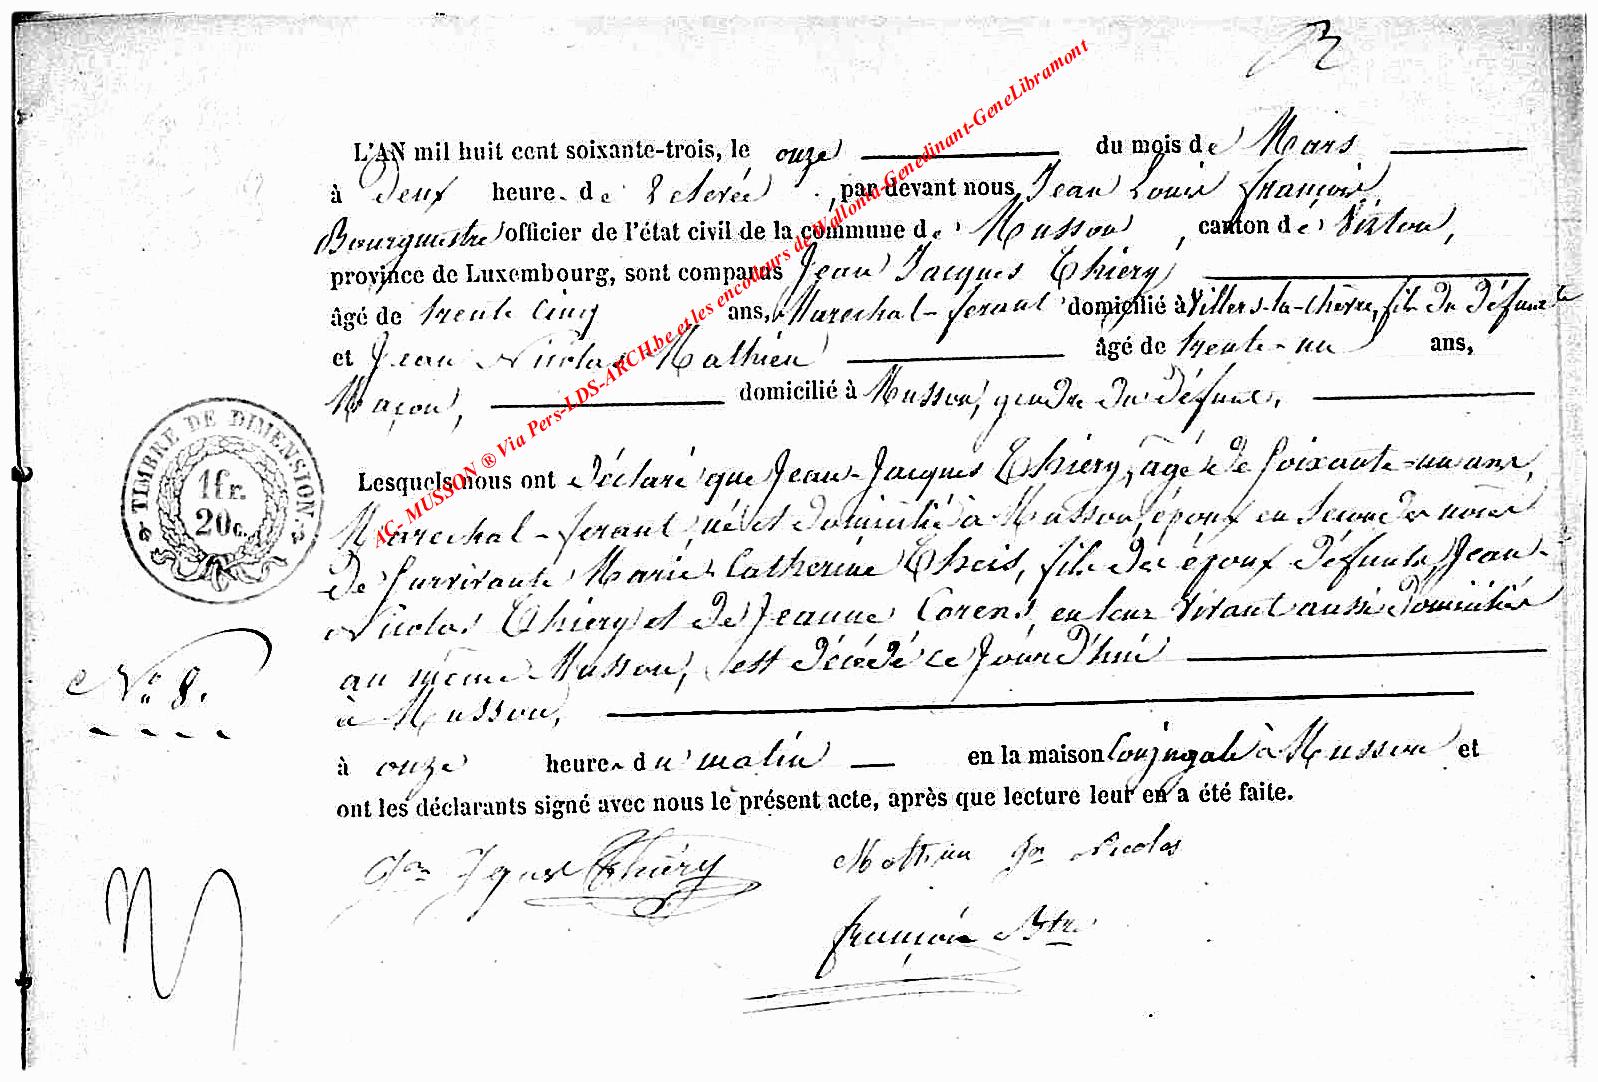 L'AN mil huit cent soixante-trois, le onze du mois de Mars
à Deux heures de relevée, par devant nous, Jean Louis françois
Bourgmestre officier de l'état civil de la commune de Musson, canton de Virton,
province de Luxembourg, sont comparus Jean Jacques Thiery
âgé de trente cinq ans, Marechal-ferant domicilié à Villers-la-chèvre, fils du défunt
et Jean Nicolas Mathieu âgé de trente-un ans,
Maçon, domicilié à Musson, gendre du défunt,
Lesquels nous ont déclaré que Jean-Jacques Thiery, agé de soixante-un ans,
Marechal-ferant, né et domicilié à Musson, époux en secondes noces
de survivante Marie Catherine Theis, fils des époux défunts, Jean-
Nicolas Thiery et de Jeanne Corens, en leur vivant aussi domiciliés
au même Musson, est décédé ce jourd'hui
à Musson,
à onze heures du matin en la maison Conjugale à Musson et
ont les déclarants signé avec nous le présent acte, après que lecture leur en a été faite.
Jn Jques Thiéry Mathieu Jn Nicolas
françois Bstre
No 8.
TIMBRE DE DIMENSION
1fr.
20c.
AC- MUSSON ® Via Pers-LDS-ARCH.be et les encodeurs de Wallonia-Genedinant-GeneLibramont